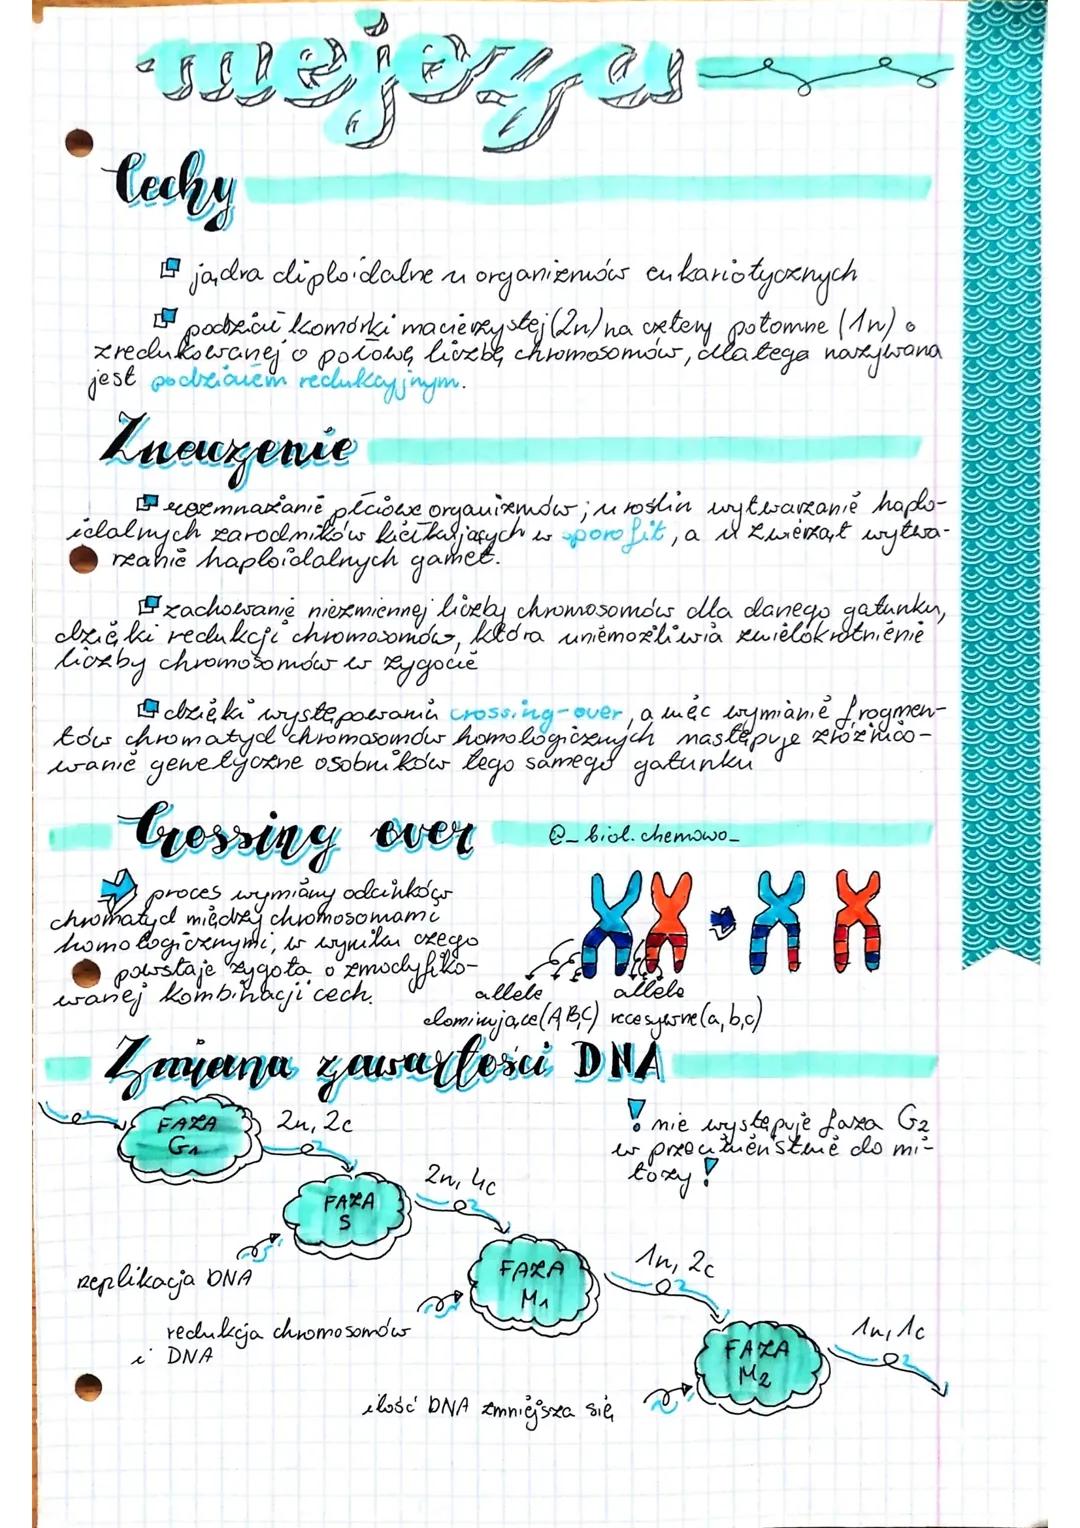 mejoza
Cechy
jądra diploidalne u organizmów eukariotycznych
podział komórki macierzystej (2n) na cztery potomne (1n) o
zredukowanej o połowę liczbę chromosomów, dlatego nazywana
jest podziałem redukcyjnym.
Znaczenie
rozmnażanie płciowe organizmów; u roślin wytwarzanie haplo-
idalnych zarodników kiełkujących w sporofit, a u zwierząt wytwa-
rzanie haploidalnych gamet.
zachowanie niezmiennej liczby chromosomów dla danego gatunku,
dzięki redukcji chromosomów, która uniemożliwia zwielokrotnienie
liczby chromosomów w zygocie
dzięki występowaniu crossing-over, a więc wymianie fragmen-
tów chromatyd chromosomów homologicznych następuje zróżnico-
wanie genetyczne osobników tego samego gatunku
Crossing over
@_biol.chemowo_
proces wymiany odcinków
chromatyd między chromosomami
homologicznymi, w wyniku czego
powstaje zygota o zmodyfiko-
wanej kombinacji cech.
allele
dominujące (A,B,C)
allele
recesywne (a,b,c)
Zmiana zawartości DNA
FAZA
G1
2n, 2c
! nie występuje faza G2
w przeciwieństwie do mi-
tozy !
FAZA
S
2n, 4c
replikacja DNA
FAZA
M1
1n, 2c
redukcja chromosomów
i DNA
FAZA
M2
1n, 1c
ilość DNA zmniejsza się